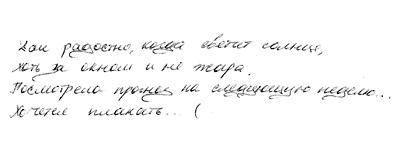 Как радостно, когда светит солнце,
хоть за окном и не жара.
Посмотрела прогноз на следующую неделю...
Хочется плакать... (